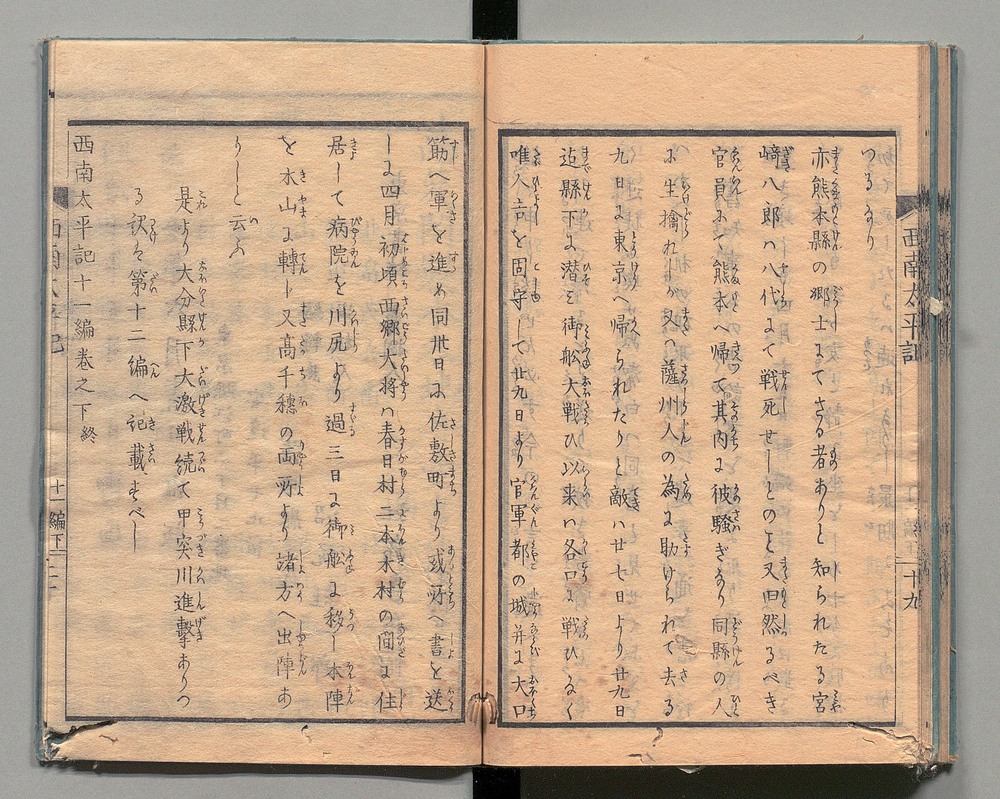 つるなり
亦熊本縣の郷士にてさる者ありと知られたる宮
﨑八郎ハ八代にて戦死せしとのこと又田然るべき
官員ハ熊本へ帰て其内に彼騒ぎなり同縣の人
に生擒れしが又ハ薩州人の為に助けられて去る
九日に東京へ帰られたりと敵ハ廿七日より廿九日
迠縣下に潜ミ御舩大戦ひ以来ハ各口に戦ひなく
唯人吉を固守して廿九日より官軍都の城并に大口
筋へ軍を進め同卅日に佐敷町より或所へ書を送
しに四月初頃西郷大将ハ春日村二本木村の間に住
居して病院を川尻より過三日に御舩に移し本陣
を水山に轉し又髙千穂の両所より諸方へ出陣あ
りしと云ふ
是より大分縣下大激戦続て甲突川進撃ありつ
る訳を第十二編へ記載すべし
西南太平記十一編巻之下終
西南太平記
十九
西南太平記
十一編下